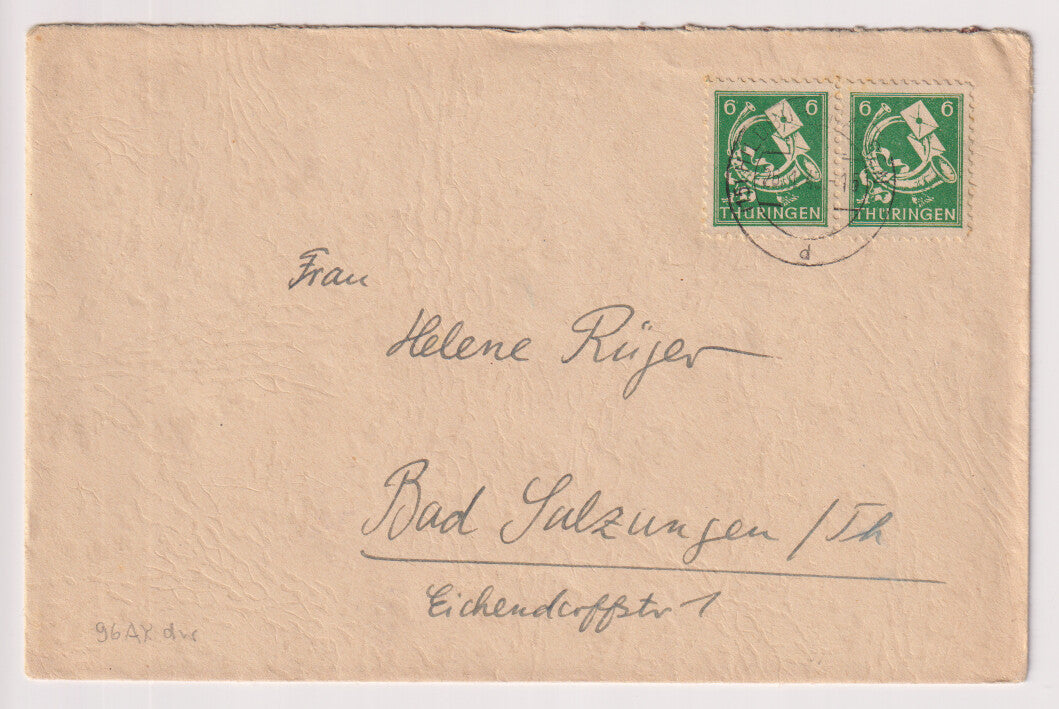 6 6
THÜRINGEN
6 6
THÜRINGEN
d
Frau
Helene Rüger
Bad Salzungen / Th
Eichendorffstr 1
96AX